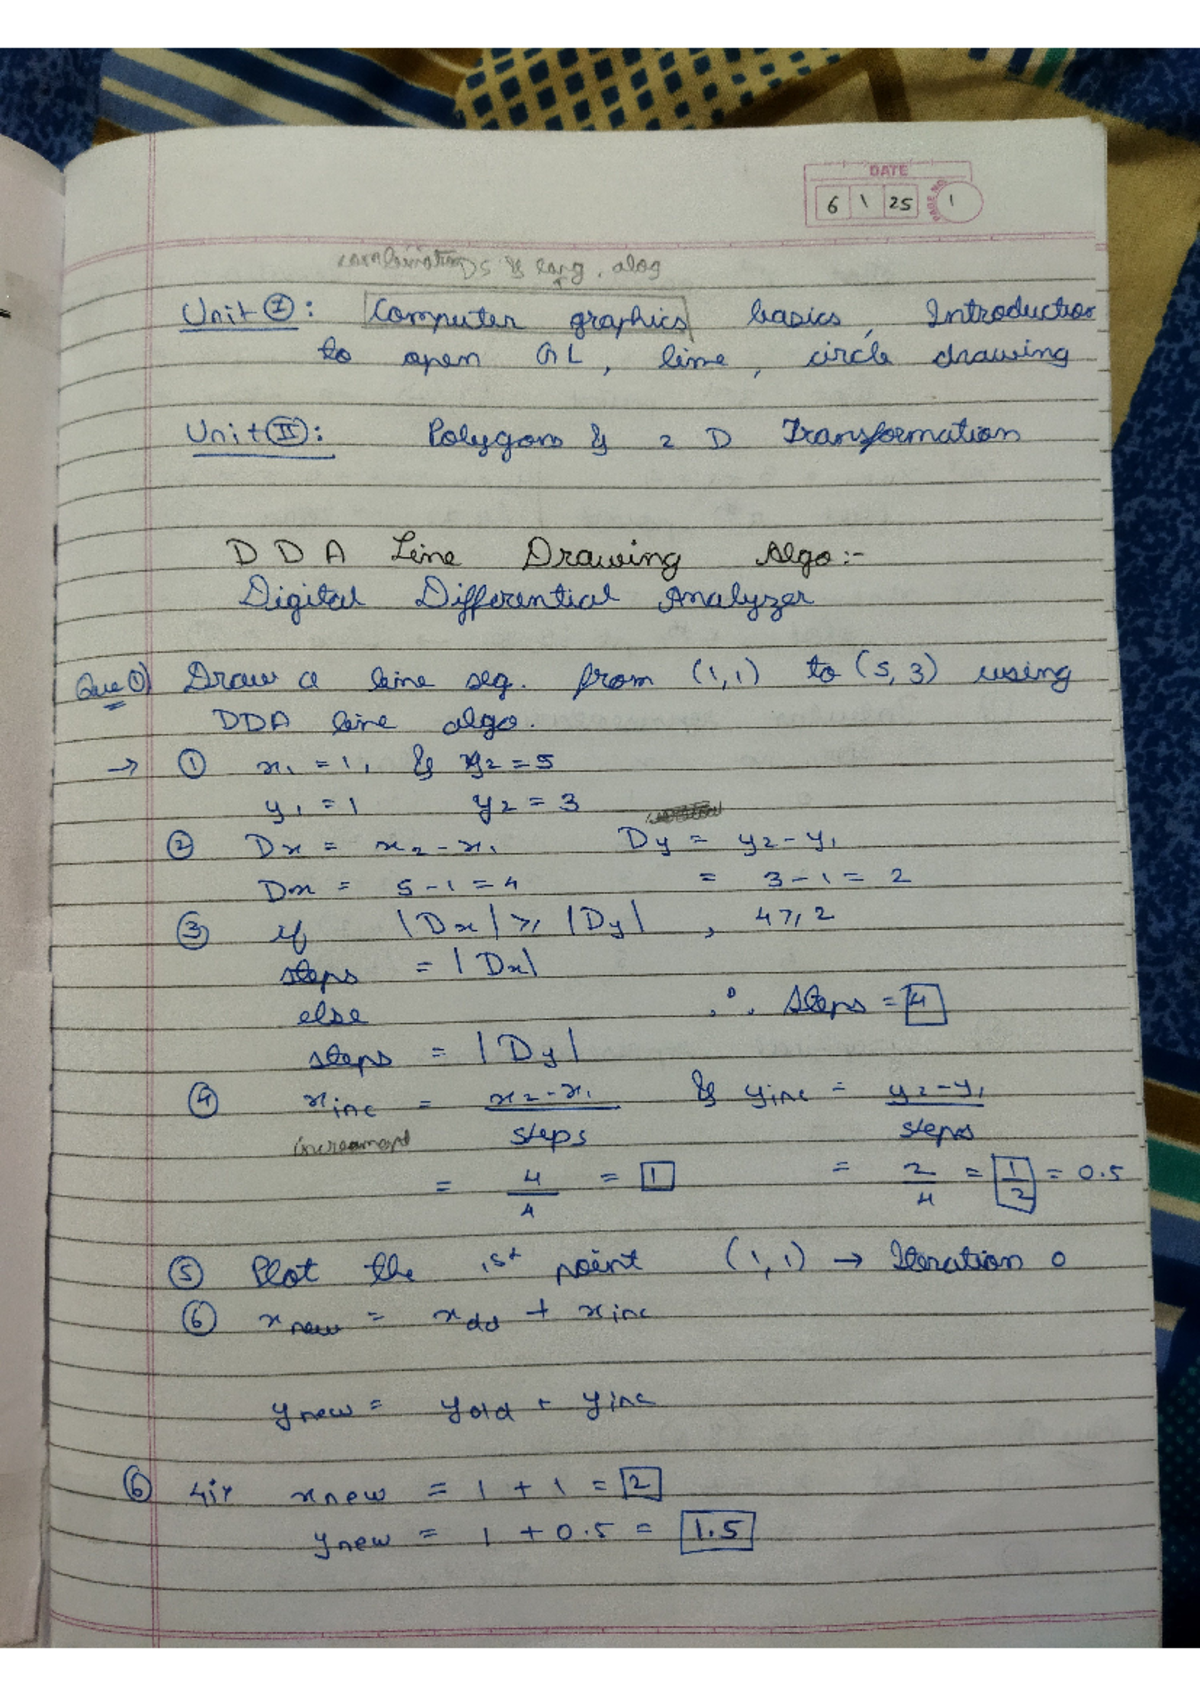 DATE
6 1 25 PAGE NO. 1
combination DS & lang, alog
Unit I : Computer graphics basics, Introduction
to open GL, line, circle drawing
Unit II : Polygons & 2 D Transformation
D D A Line Drawing Algo:-
Digital Differential Analyzer
Que 1) Draw a line seg. from (1,1) to (5,3) using
DDA line algo.
→ ① x₁ = 1, & x₂ = 5
y₁ = 1 y₂ = 3
② Dx = x₂ - x₁ Dy = y₂ - y₁
Dx = 5 - 1 = 4 = 3 - 1 = 2
③ if |Dx| ≥ |Dy| , 4 ≥ 2
steps = |Dx|
else ∴ Steps = 4
steps = |Dy|
④ xinc = x₂ - x₁ / steps & yinc = y₂ - y₁ / steps
increament
= 4/4 = 1 = 2/4 = 1/2 = 0.5
⑤ Plot the 1st point (1,1) → Iteration 0
⑥ xnew = xold + xinc
ynew = yold + yinc
⑥ xnew = 1 + 1 = 2
ynew = 1 + 0.5 = 1.5